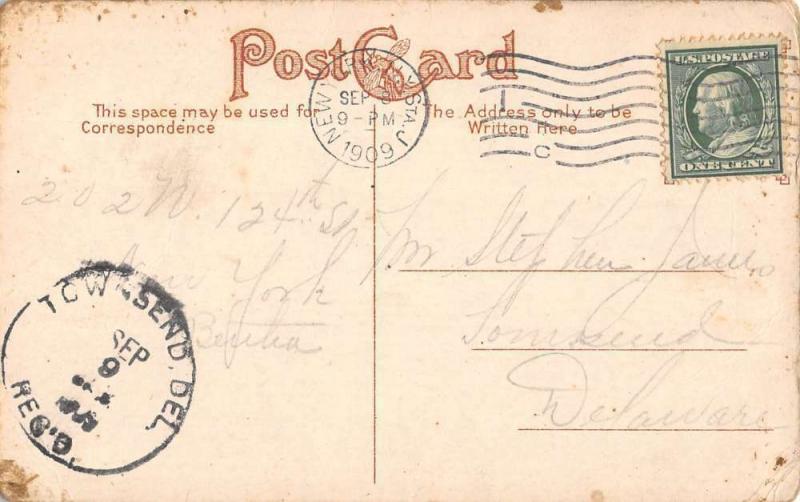 Post Card
This space may be used for
Correspondence
The Address only to be
Written Here
NEW YORK, N.Y. STA. J
SEP 8
9-PM
1909
I
C
U.S. POSTAGE
ONE CENT
202 W. 124th St
New York
Bertha
Mr Stephen James
Townsend
Delaware
TOWNSEND, DEL.
SEP
9
1909
REC'D.